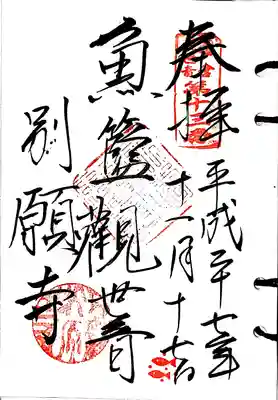 奉拝
平成二十七年
十一月十七日
魚籃観世音
別願寺